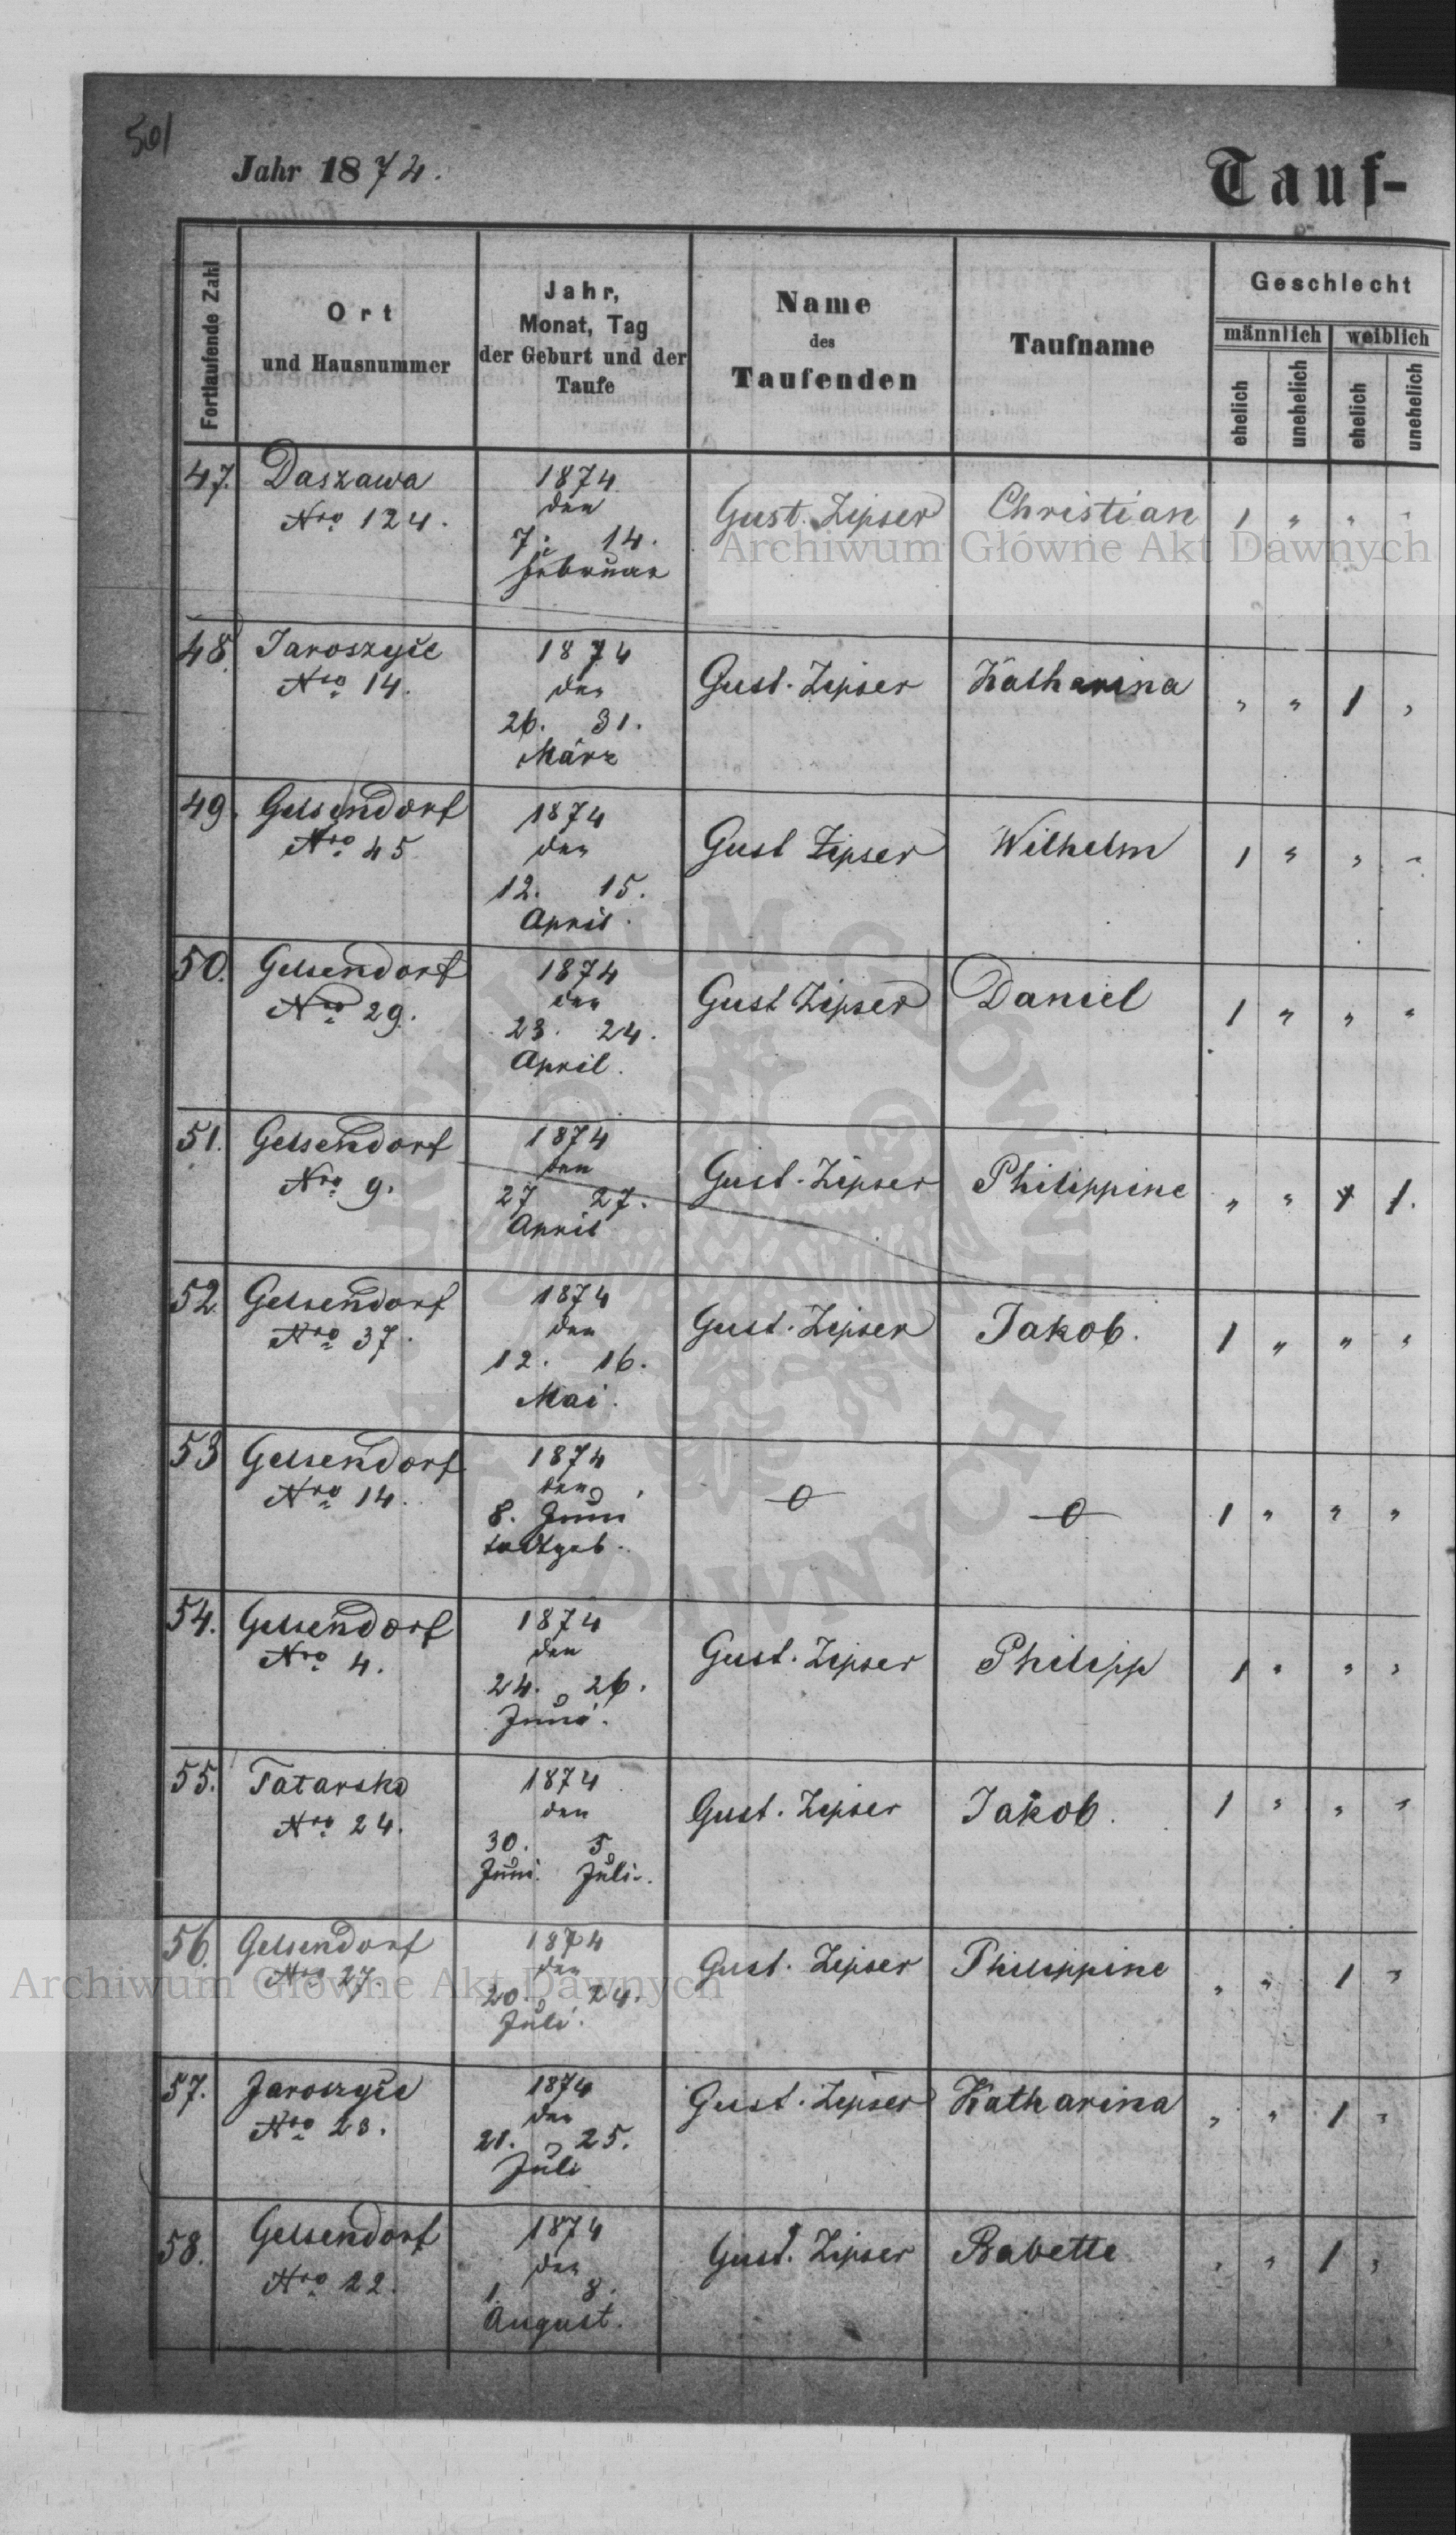 501
Jahr 1874.
Tauf-
Fortlaufende Zahl
Ort
und Hausnummer
Jahr,
Monat, Tag
der Geburt und der
Taufe
Name
des
Taufenden
Taufname
Geschlecht
männlich weiblich
ehelich unehelich ehelich unehelich
47. Daszawa 1874 Gust. Zipser Christian 1 " " "
Nro 124. den
7. 14.
Februar
48. Jaroszyce 1874 Gust. Zipser Katharina " " 1 "
Nro 14. den
26. 31.
März
49. Gelsendorf 1874 Gust Zipser Wilhelm 1 " " "
Nro 45 den
12. 15.
April.
50. Gelsendorf 1874 Gust Zipser Daniel 1 " " "
Nro 29. den
23. 24.
April.
51. Gelsendorf 1874 Gust. Zipser Philippine " " 1 1.
Nro 9. den
27 27.
April
52 Gelsendorf 1874 Gust. Zipser Jakob. 1 " " "
Nro 37. den
12. 16.
Mai.
53 Gelsendorf 1874 1 " " "
Nro 14. den
8. Juni
todtgeb.
54. Gelsendorf 1874 Gust. Zipser Philipp 1 " " "
Nro 4. den
24. 26.
Juni.
55. Tatarsko 1874 Gust. Zipser Jakob. 1 " " "
Nro 24. den
30. 5
Juni. Juli.
56. Gelsendorf 1874 Gust. Zipser Philippine " " 1 "
Nro 27. den
20. 24.
Juli.
57. Jaroszyce 1874 Gust. Zipser Katharina " " 1 "
Nro 23. den
21. 25.
Juli
58. Gelsendorf 1874 Gust. Zipser Babette " " 1 "
Nro 22. den
1 8.
August.
Archiwum Główne Akt Dawnych
Archiwum Główne Akt Dawnych
ARCHIWUM GŁÓWNE AKT DAWNYCH